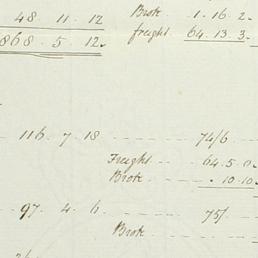 48 . 11 . 12 Brok 1 . 16 . 2
freight 64 . 13 . 3
868 . 5 . 12
116 . 7 . 18 74/6
Freight 64 . 5 . 0
Brok . 10 . 10
97 . 4 . 6 75/
Brok